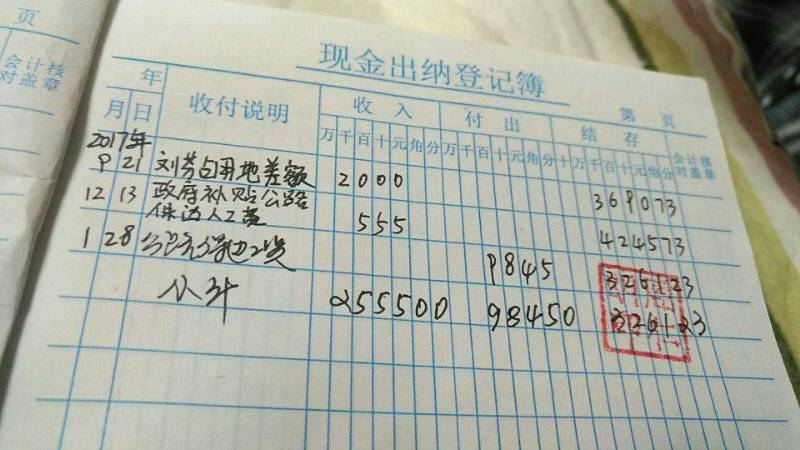 页
会计核
对盖章
现金出纳登记簿
第 页
年 收付说明 收入 付出 结存 会计核
月日 万千百十元角分 万千百十元角分 十万千百十元角分 对盖章
2017年
9 21 刘芬占用地差额 2000 369073
12 13 政府补贴公路
保洁人工费 555 424573
1 28 9845 326123
小计 255500 98450 326123